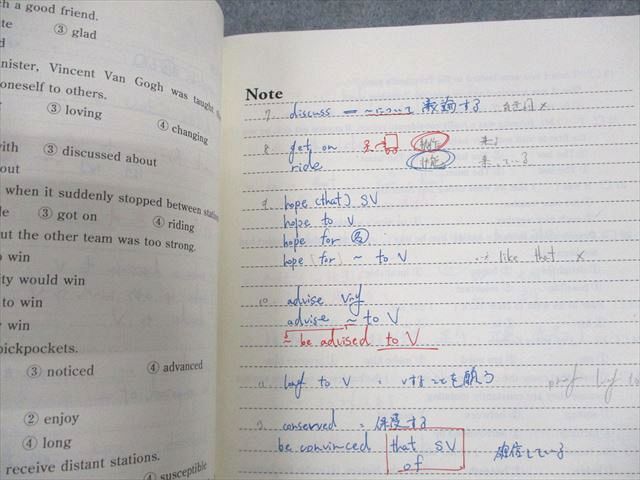 h a good friend.
te ③ glad
d
nister, Vincent Van Gogh was taught the
oneself to others.
g ③ loving ④ changing
with ③ discussed about
out
when it suddenly stopped between stations
le ③ got on ④ riding
but the other team was too strong.
o win
ity would win
to win
win
pickpockets.
③ noticed ④ advanced
② enjoy
④ long
receive distant stations.
④ susceptible
Note
7. discuss ~について 議論する
8. get on 動作
ride 状態
9. hope (that) SV
hope to V
hope for 名
hope (for) ~ to V like that ×
10. advise Ving
advise ~ to V
~ be advised to V
11. long to V Vすることを願う
conserved 保護する
be convinced that SV 確信している
of